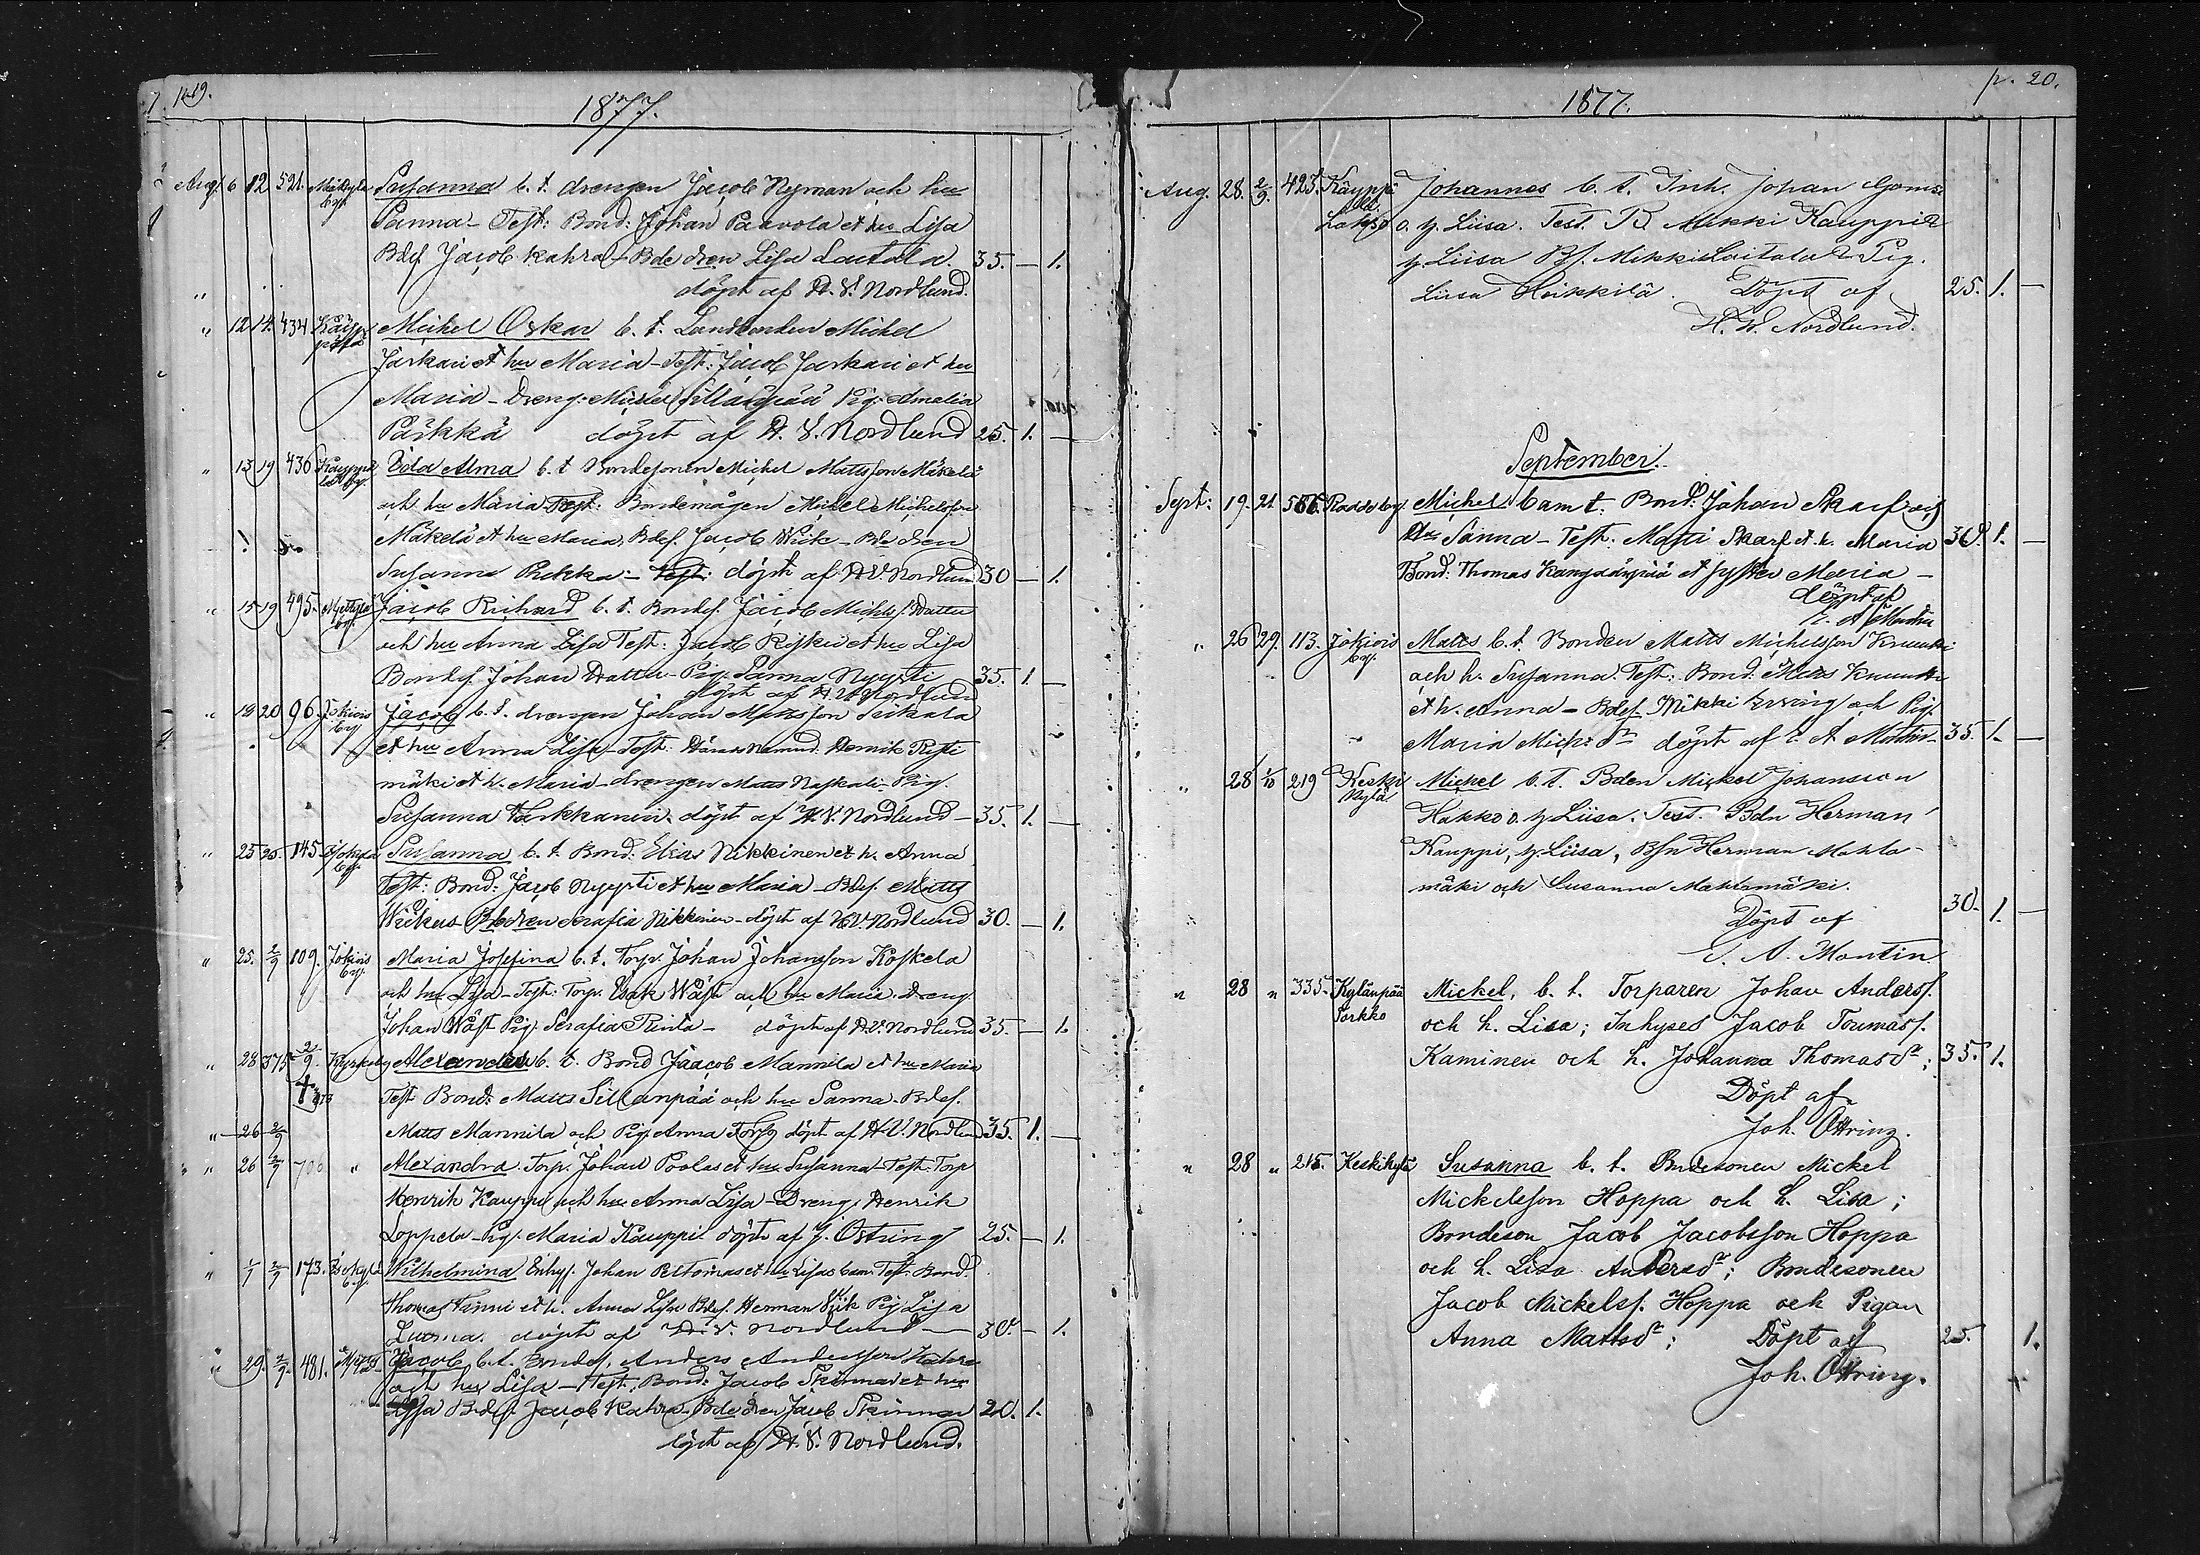 1877.
Aug. 6 12 521. Mäkylä by. Susanna b. t. drengen Jacob Nyman och hu
Sanna – Test: Bond: Johan Paavola et hu Lisa
Bdes Jacob Kahra – Bde dren Lisa Lautala 35. – 1.
döpt af H. V. Nordlund.
" 12 14. 434 Michel Oskar b. t. Landbonden Michel
Jaskari et hu Maria – Test: Jacob Jaskari et hu
Maria – Dreng: Michel Sillanpää Pig: Amalia
Pärkkä döpt af H. V. Nordlund 25. 1. –
" 13 19 436 Kauppila by. Eda Alma b. t. Bondesonen Michel Mattsson Mäkelä
och hu Maria Test: Bondemågen Michel Michelsson
Mäkelä et hu Maria, Bdes. Jacob Wiik – Bde dren
Susanna Pukka – Test: döpt af H V. Nordlund 30 – 1.
" 15 19 495. by. Jacob Richard b. t. Bondes. Jacob Michels. Hattu
och hu Anna Lisa Test: Jacob Ryski et hu Lisa
Bondes Johan Hattu – Pig. Sanna Nyysti 35. 1. –
döpt af H V Nordlund
" 19 20 96. Jokiois by Jacob b. t. drengen Johan Mattsson Siikala
et hu Anna Lisa – Test: Häradsnämnd. Henrik Risti
mäki et h. Maria – drengen Matts Naskali – Pig.
Susanna Karkkanin. döpt af H. V. Nordlund – 35. 1. –
" 25 26. 145 by. Susanna b. t. Bond: Elias Nikkinen et h. Anna
Test: Bond: Jacob Nyysti et hu Maria – Bdes. Matts
Wickus Bde dren Serafia Nikkinen – döpt af H V. Nordlund 30. – 1.
" 25. 2/9 109. Jokiois by. Maria Josefina b. t. Torp. Johan Johansson Koskela
och hu Lisa – Test: Torp. Isak Wäst och hu Maria. Dreng.
Johan Wäst Pig. Serafia Rinta – döpt af H V. Nordlund 35. – 1.
" 28 375 2/9. Kyrkoby Alexander b. t. Bond Jaacob Mannila et hu Maria
Test Bond: Matts Sillanpää och hu Sanna. Bdes.
" 26 2/9 Matts Mannila och Pig. Anna döpt af H. V. Nordlund 35. 1. –
" " 26 2/9 706 " Alexandra. Torp. Johan Poolas et hu Susanna – Test: Torp
Henrik Kauppi och hu Anna Lisa – Dreng. Henrik
Loppela – Pig. Maria Kauppi döpt af J. Östring 25. – 1.
" 2/9 173. Wilhelmina Inhys. Johan et hu Lisas barn Test: Bond.
Thomas Fanni et h. Anna Lisa Bdes. Herman Wiik Pig Lisa
Luoma. döpt af H. V. Nordlund – 30. – 1.
" 29. 2/9. 481. Jacob b. t. Bondes. Anders Andersson Kahra
och hu Lisa – Test. Bond: Jacob Skinnar et hu
Lisa Bdes. Jacob Kahra – Bde dren Jacob Skinnar 20. 1.
döpt af H. V. Nordlund.
p. 20.
1877.
Aug. 28. 2/9. 423. Kauppi Johannes b. t. Inh. Johan
o. h. Liisa. Test. B. Mikki Kauppila
h. Liisa Bs. Mikki Loitala Pig.
Liisa Heikkilä. Döpt af 25. 1. –
H. W. Nordlund.
September.
Sept: 19. 21. Radde by. Michel barn t. Bond: Johan Skarf och
hu Sanna – Test: Matti Skarf et h. Maria 30. 1. –
Bond: Thomas Kangasnpää et syster Maria –
döpt af
" 26 29. 113. Jokiois by. Matts b. t. Bonden Matts Michelsson Knuutti
och h. Susanna. Test: Bond. Matts Knuutti
et h. Anna – Bdes. Mikki och Pig.
Maria Mickels dr döpt af C. A. Montin – 35. 1. –
" 28 1/10 219 Keski kylä Mickel b. t. Bden Mickel Johansson
Hakko o. h. Liisa. Test. Bdn Herman
Kauppi, h. Liisa, Bsn Herman Mahla-
mäki och Susanna Mahlamäki.
30. 1. –
Döpt af
C. A. Montin.
" 28 " 335. Kylänpää Torkko Mickel, b. t. Torparen Johan Anderss.
och h. Lisa; Inhyses Jacob Toumass.
Kaminen och h. Johanna Thomasdr; 35. 1.
Döpt af
Joh. Östring.
" 28 " 215. Keskikylä Susanna b. t. Bondesonen Mickel
Mickelsson Hoppa och h. Lisa;
Bondeson Jacob Jacobsson Hoppa
och h. Lisa Andersdr; Bondesonen
Jacob Mickelss. Hoppa och Pigan
Anna Mattsdr; Döpt af 25. 1.
Joh. Östring.